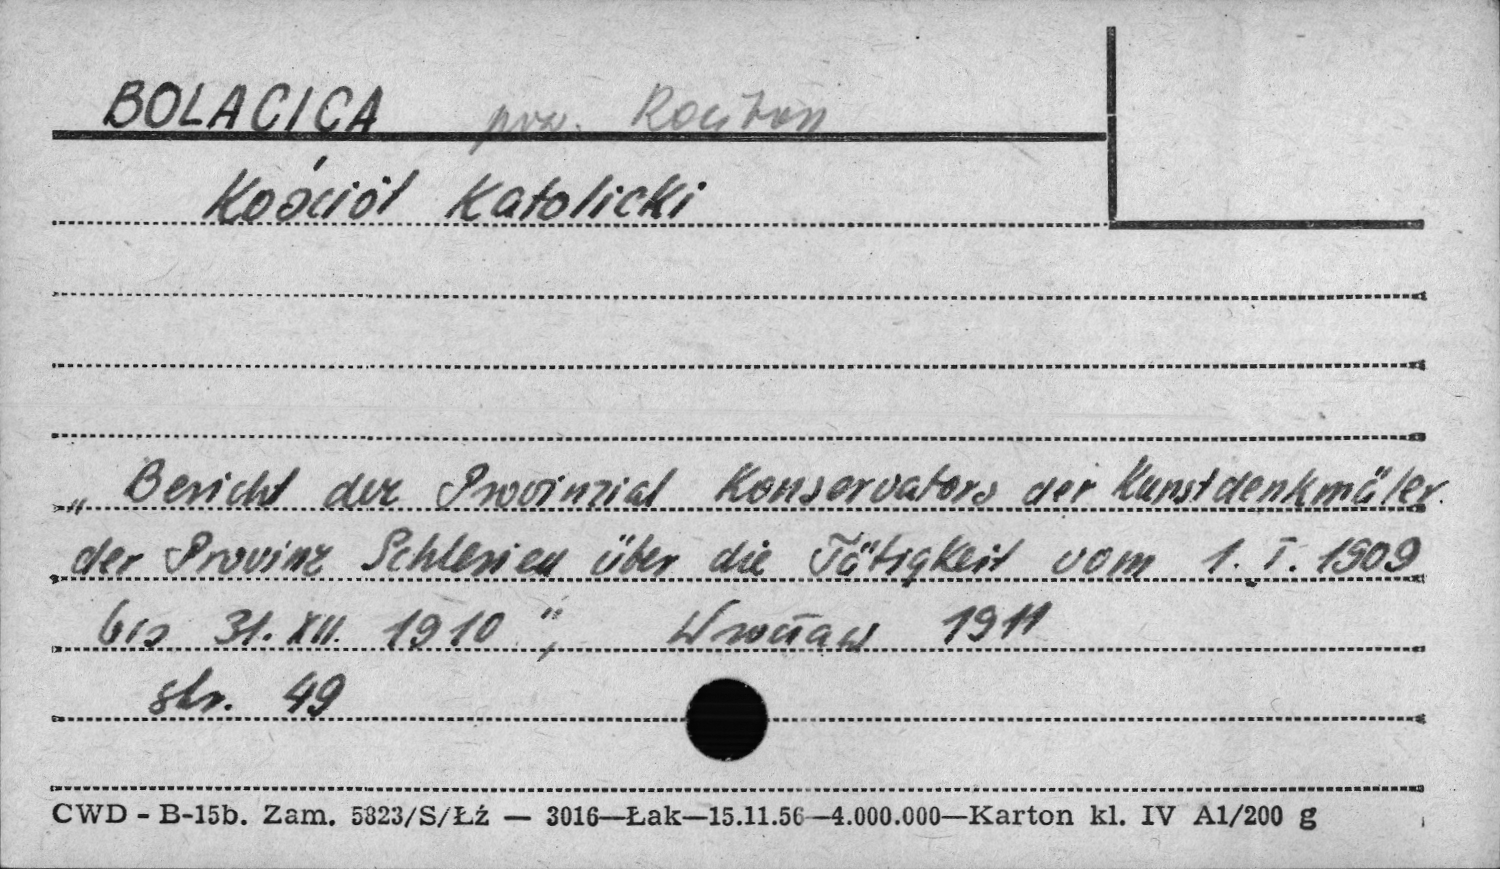 BOLACICA pow. Racibon
Kościół Katolicki
„Bericht der Provinzial Konservators der Kunstdenkmäler
der Provinz Schlesien über die Tätigkeit vom 1. I. 1909
bis 31. XII. 1910", Wrocław 1911
str. 49
CWD - B-15b. Zam. 5823/S/Łź — 3016—Łak—15.11.56—4.000.000—Karton kl. IV A1/200 g